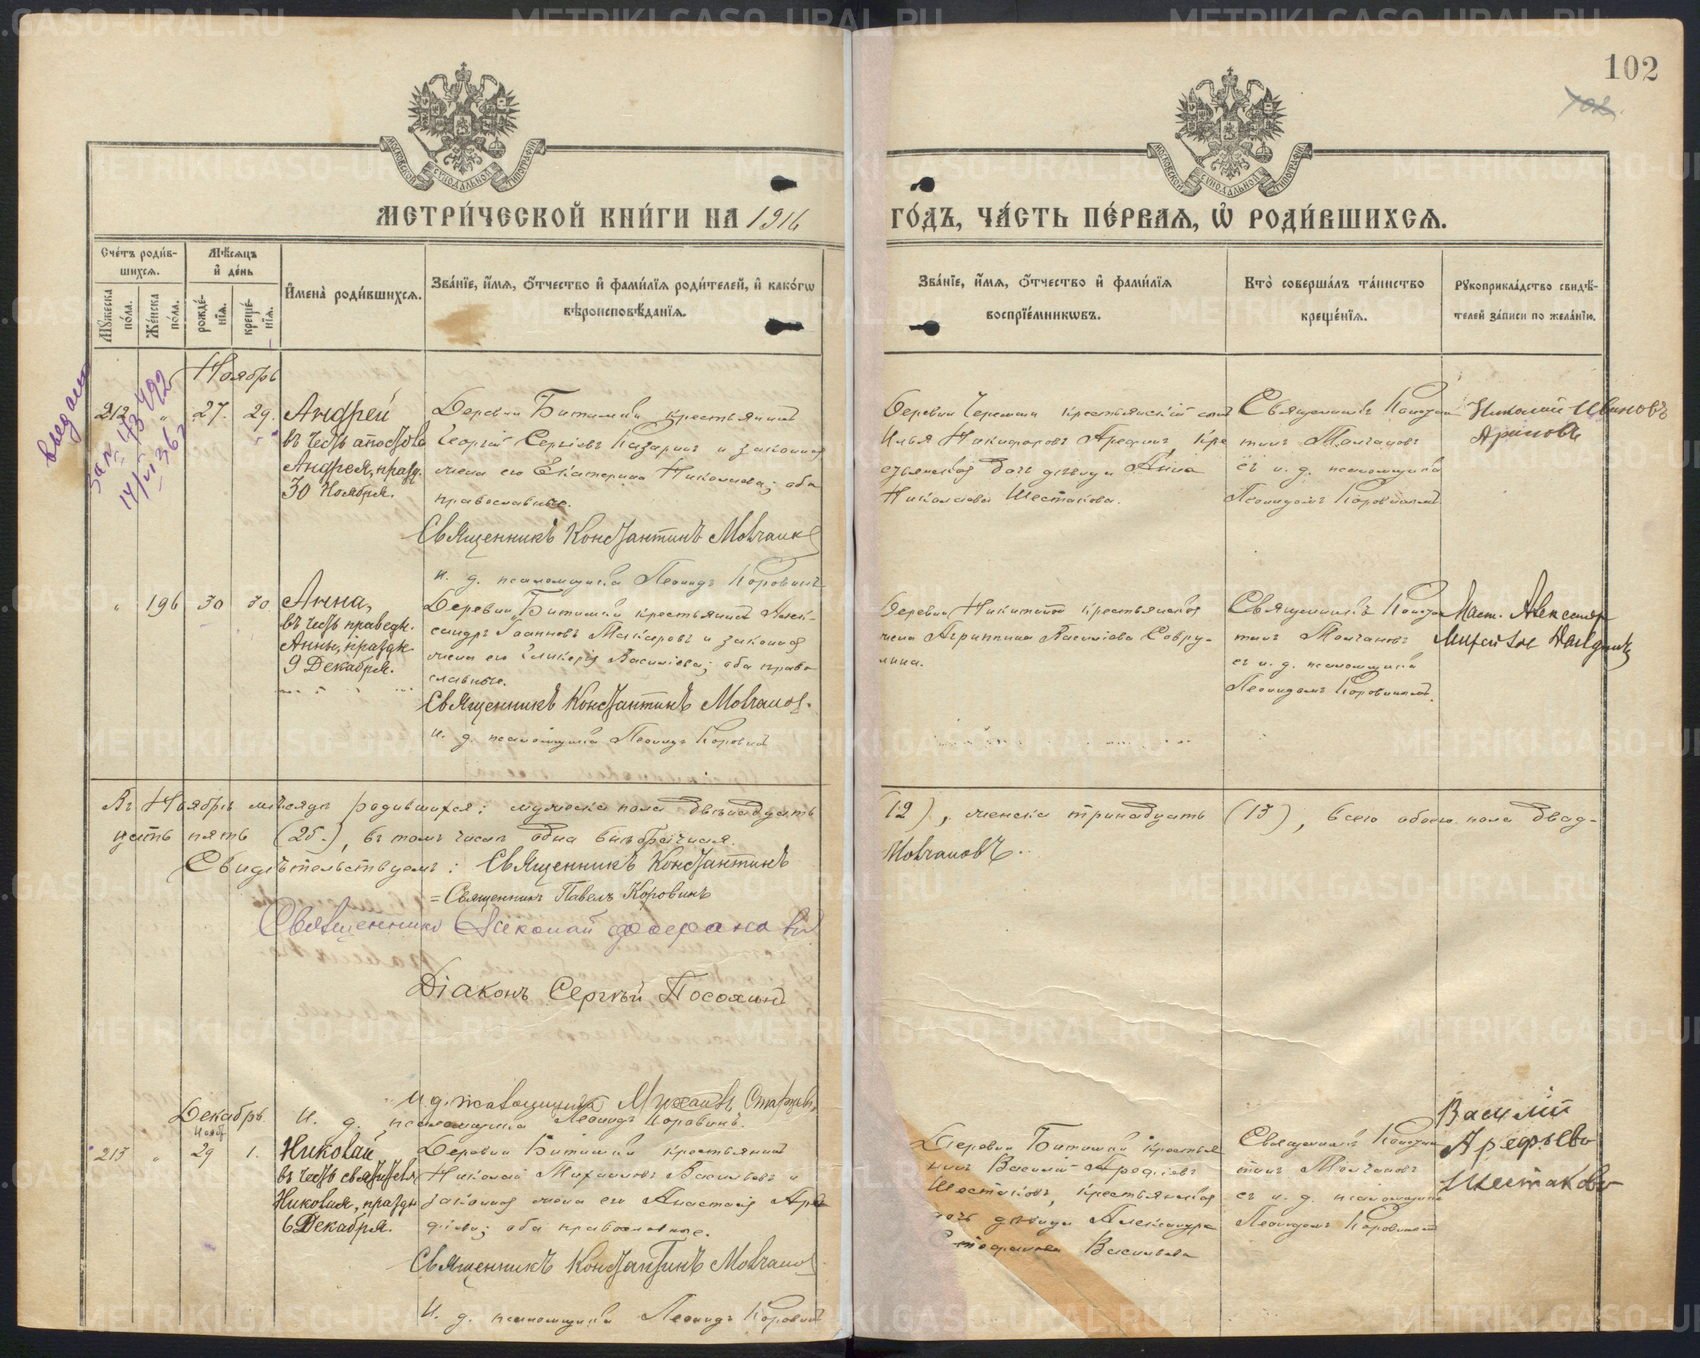 102
МЕТРИ́ЧЕСКОЙ КНИ́ГИ НА 1916 ГО́ДЪ, ЧА́СТЬ ПЕ́РВАѦ, Ѡ҆ РОДИ́ВШИХСѦ.
Сче́тъ роди́в-
шихсѧ.
Мꙋ́жеска по́ла.
Же́нска по́ла.
Мѣ́сѧцъ
и҆ де́нь
рожде́-
нїѧ.
креще́-
нїѧ.
И҆мена̀ роди́вшихсѧ.
Зва́нїе, и҆́мѧ, ѻ҆́тчество и҆ фами́лїѧ роди́телей, и҆ како́гѡ
вѣроисповѣ́данїѧ.
Зва́нїе, и҆́мѧ, ѻ҆́тчество и҆ фами́лїѧ
воспрїе́мникѡвъ.
Кто̀ соверша́лъ та́инство
креще́нїѧ.
Рꙋкоприкла́дство свидѣ́-
телей за́писи по жела́нїю.
Ноябрь
212 " 27. 29.
Андрей
въ честь апостола
Андрея, празд.
30 Ноября.
Деревни Битимки крестьянинъ
Георгій Сергіевъ Казаринъ и законная
жена его Екатерина Николаева; оба
православные.
Священникъ Константинъ Молчановъ
И. д. псаломщика Леонидъ Коровинъ
Деревни Черемши крестьянскій сынъ
Илья Никифоровъ Арефинъ кре
стьянская дочь дѣвица Анна
Николаева Шестакова.
Священникъ Констан
тинъ Молчановъ
съ и. д. псаломщика
Леонидомъ Коровинымъ
Николай Ивановъ
" 196 30 30
Анна,
въ честь праведн.
Анны, праздн.
9 Декабря.
Деревни Битимки крестьянинъ Алек-
сандръ Іоанновъ Макаровъ и законная
жена его Гликерія Васильева; оба право-
славные.
Священникъ Константинъ Молчановъ.
И. д. псаломщика Леонидъ Коровинъ
Деревни Никитиной крестьянская
жена Агриппина Васильева
Священникъ Констан
тинъ Молчановъ
съ и. д. псаломщика
Леонидомъ Коровинымъ
Александр
Въ Ноябрѣ мѣсяцѣ родившихся: мужеска пола двѣнадцать (12), женска тринадцать (13), всего обоего пола двад-
цать пять (25.), въ томъ числѣ одна внѣбрачная.
Свидѣтельствуемъ: Священникъ Константинъ Молчановъ.
= Священникъ Павелъ Коровинъ
Священникъ Николай
Діаконъ Сергѣй
И. д. псаломщика Михаилъ
И. д. псаломщика Леонидъ Коровинъ.
Декабрь
Нояб.
213 " 29 1.
Николай
въ честь святителя
Николая, праздн
6 Декабря.
Деревни Битимки крестьянинъ
Николай Михаиловъ Васильевъ и
законная жена его Анастасія
оба православные.
Священникъ Константинъ Молчановъ
И. д. псаломщика Леонидъ Коровинъ
Деревни Битимки крестья
нинъ Василій Арефіевъ
Шестаковъ, крестьянская
дочь дѣвица Александра
Стефанова Васильева
Священникъ Констан
тинъ Молчановъ
съ и. д. псаломщика
Леонидомъ Коровинымъ
Василій
Арефьевъ
Шестаковъ
METRIKI.GASO-URAL.RU